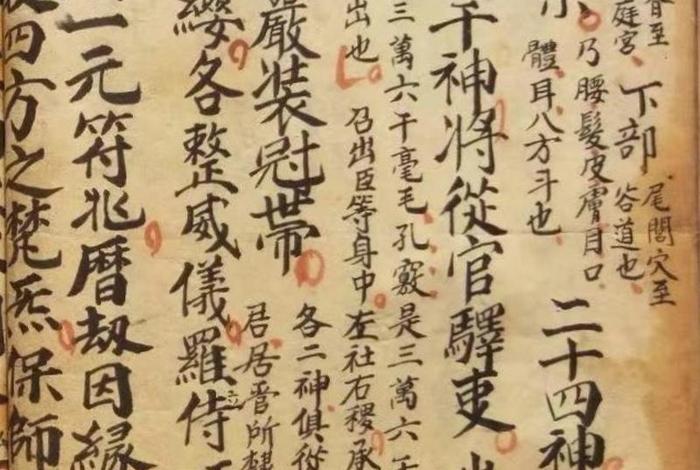 脊至
庭宮
下部
尾閭穴至
谷道也
乃腰髮皮膚目口
體耳八方斗也
二十四神
千神將從官驛吏
三萬六千毫毛孔竅是三萬六千
出也
召出臣等身中左社右稷承
嚴裝冠帶
各二神俱從
纓各整威儀羅侍
立
一元符兆曆劫因緣
四方之梵炁保師